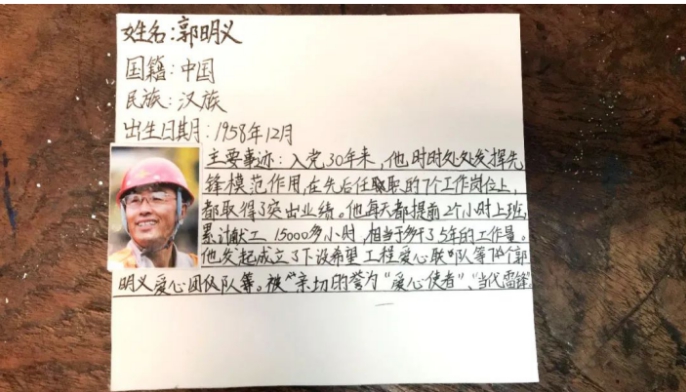 姓名:郭明义
国籍:中国
民族:汉族
出生日期:1958年12月
主要事迹:入党30年来,他时时处处发挥先
锋模范作用,在先后任职的7个工作岗位上,
都取得了突出业绩。他每天都提前2个小时上班,
累计献工15000多小时,相当于多干了5年的工作量。
他发起成立了下设希望工程爱心联队等 个郭
明义爱心团队等。被“亲切的誉为“爱心使者”、“当代雷锋